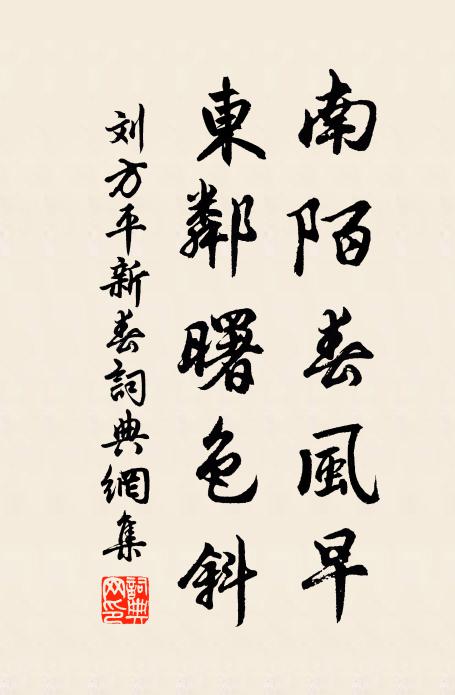 南陌春風早
東鄰曙色斜
刘方平新春詞典網集
詞典网印